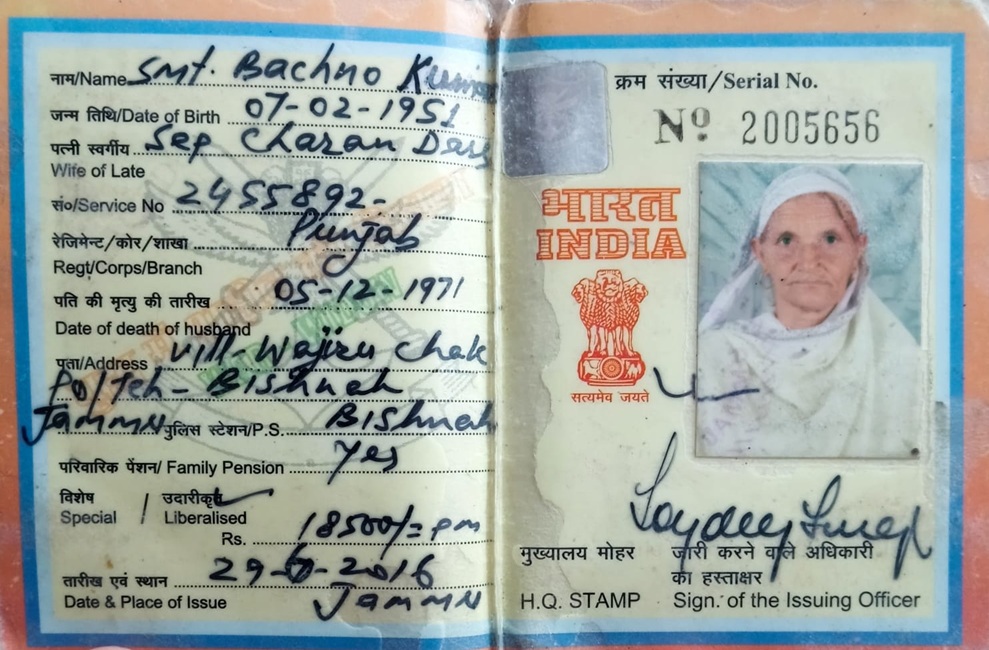 नाम/Name Smt. Bachno Kumari
जन्म तिथि/Date of Birth 07-02-1951
पत्नी स्वर्गीय Sep Charan Dass
Wife of Late
सं०/Service No 2455892-
रेजिमेन्ट/कोर/शाखा Punjab
Regt/Corps/Branch
पति की मृत्यु की तारीख 05-12-1971
Date of death of husband
पता/Address Vill-Wajiru Chak
Po/Teh- Bishnah
Jammu पुलिस स्टेशन/P.S. Bishnah
परिवारिक पेंशन/ Family Pension Yes
विशेष / उदारीकृत
Special / Liberalised
Rs. 18500/= pm
तारीख एवं स्थान 29-6-2016
Date & Place of Issue Jammu
क्रम संख्या/Serial No.
Nº 2005656
भारत
INDIA
सत्यमेव जयते
मुख्यालय मोहर जारी करने वाले अधिकारी
का हस्ताक्षर
H.Q. STAMP Sign. of the Issuing Officer